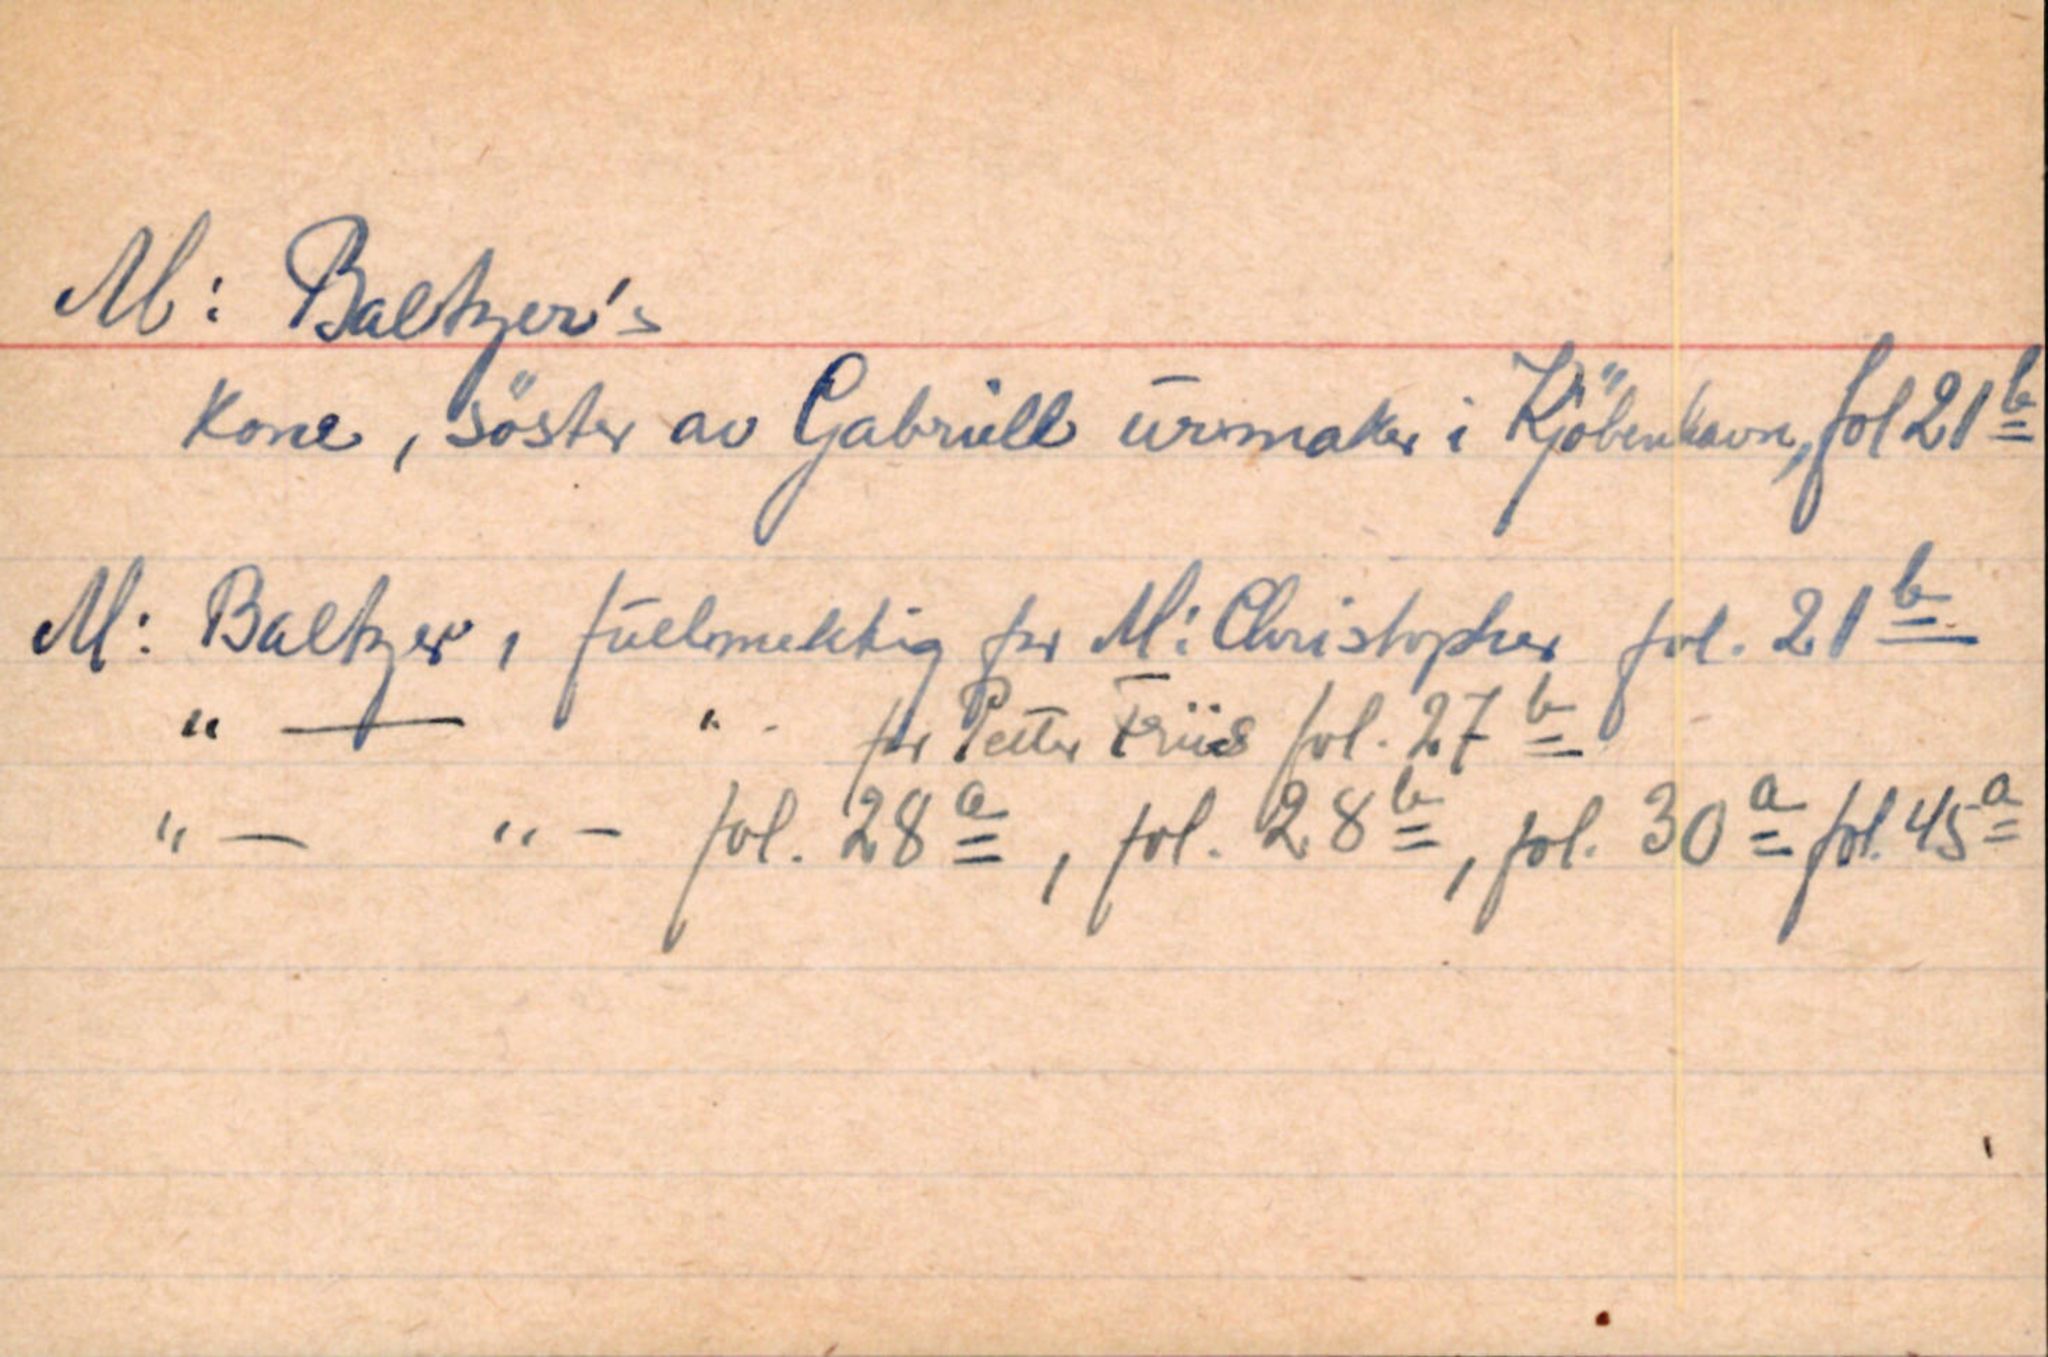 M: Baltzer's
Kone, söster av Gabriell urmaker i Kjöbenhavn, fol 21b
M: Baltzer, fullmektig for M: Christopher fol. 21b
" — " - for Petter Friis fol. 27b
" — " — fol. 28a, fol. 28b, fol. 30a fol. 45a